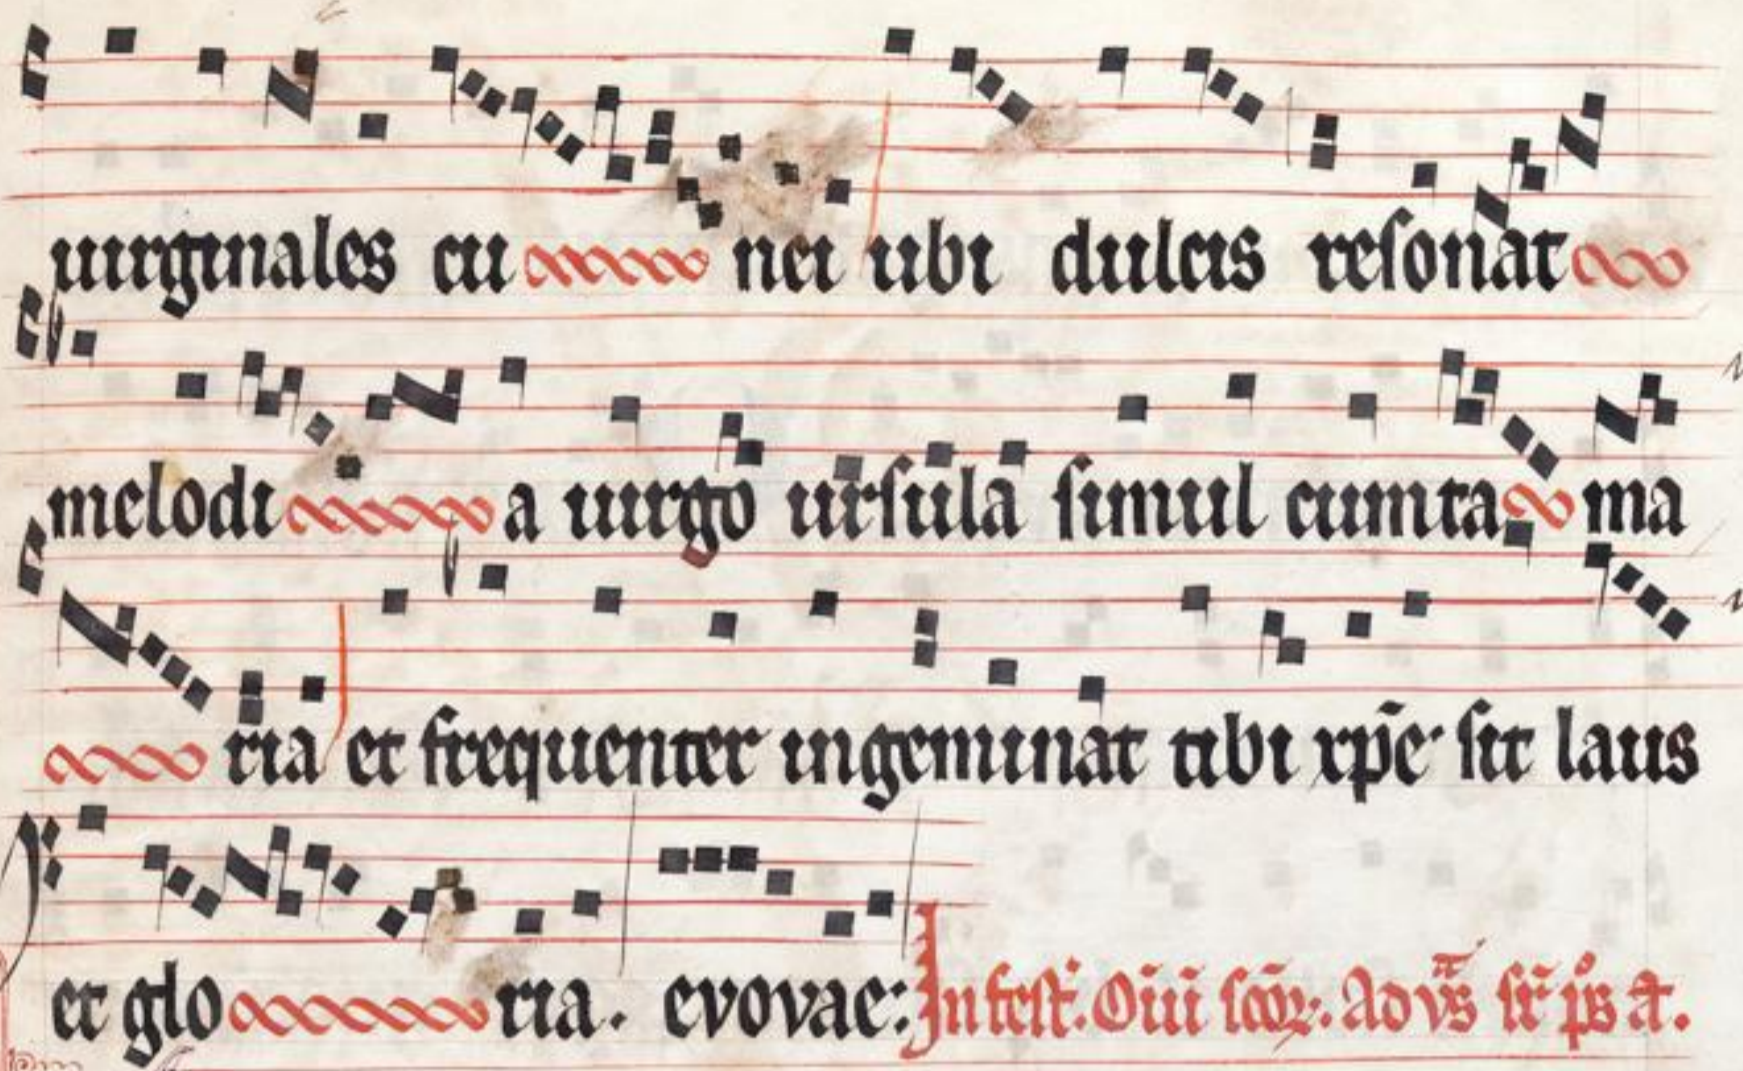 uirginales cu nei ubi dulcis resonat
melodi a uirgo ursula simul cum ta ma
ria et frequenter ingeminat tibi xp̄e sit laus
et glo ria. evovae: In fest. Oīū scōꝝ. Ad vs̄ sr̄ ps̄ a.